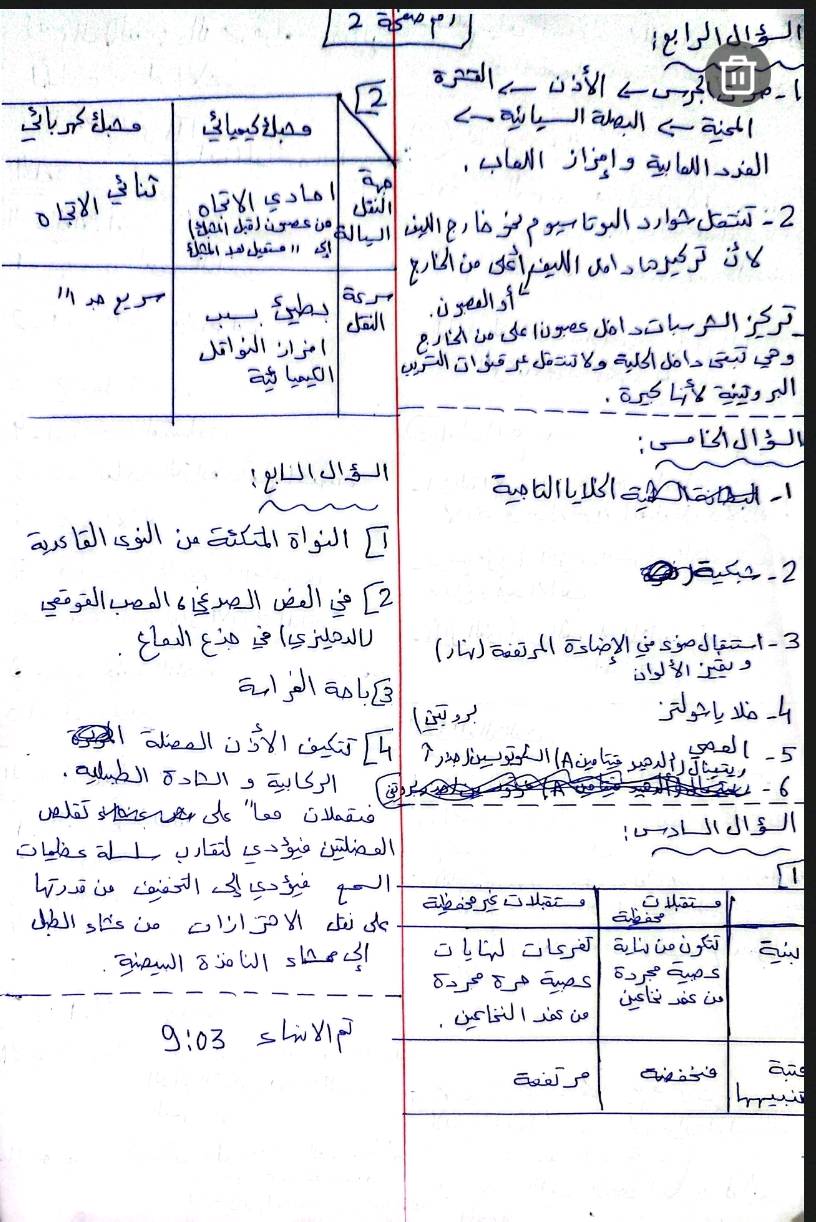 رقم صفحة 2
السؤال الرابع:
1- صوت الجرس ← الأذن ← القشرة
المخية ← البصلة السيسائية ←
الغدد اللعابية وإفراز اللعاب.
2- تنتقل شوارد البوتاسيوم نحو خارج الليف
لأن تركيزها داخل الليف أعلى من الخارج
أو العصبون.
_ تركيز الشرسبات داخل العصبون أعلى من الخارج
وهي تبقى داخل الخلية ولا تنتقل عبر قنوات التسريب
البروتينية لأنها كبيرة.
السؤال الخامس:
1- الخلايا التاجية
2- شبكية
3- استقبال ضوئي في الإضاءة المرتفعة (نهار)
وتمييز الألوان
4- خلايا شولتز
5- العصي
ريتينال (ألدهيد فيتامين A) السكوتوبسين (جذر
بروتيني)
6-
السؤال السادس:
1
مستقبلات محفظية
مستقبلات غير محفظية
بنية
تتكون من نهاية
عصبية مجردة
من غمد نخاعين
تفرعات لنهايات
عصبية حرة مجردة
من غمد النخاعين.
عتبة
تنبيهها
منخفضة
مرتفعة
2
مشبك كيميائي
مشبك كهربائي
جهة
النقل
السيالة
أحادي الاتجاه
(من عصبون (قبل المشبك)
إلى " مستقبل بعد المشبك
ثنائي
الاتجاه
سرعة
النقل
بطيئ بسبب
إفراز النواقل
الكيميائية
سريع جداً
السؤال السابع:
1 النواة المتكئة من النوى القاعدية
2 في الفص الصدغي، العصب القوقعي
(الدهليزي) في جذع الدماغ.
3 باحة القراءة
4 تتكيف الأذن العضلة
الركابية و الشادة الطبلية.
فتعملان معاً على تقلص
العضلتين فيؤدي لتقارب سلسلة عظيمات
السمع فيؤدي إلى التخفيف من قدرتها
على نقل الاهتزازات من غشاء الطبل
إلى غشاء النافذة البيضية.
تم الانتهاء 9:03